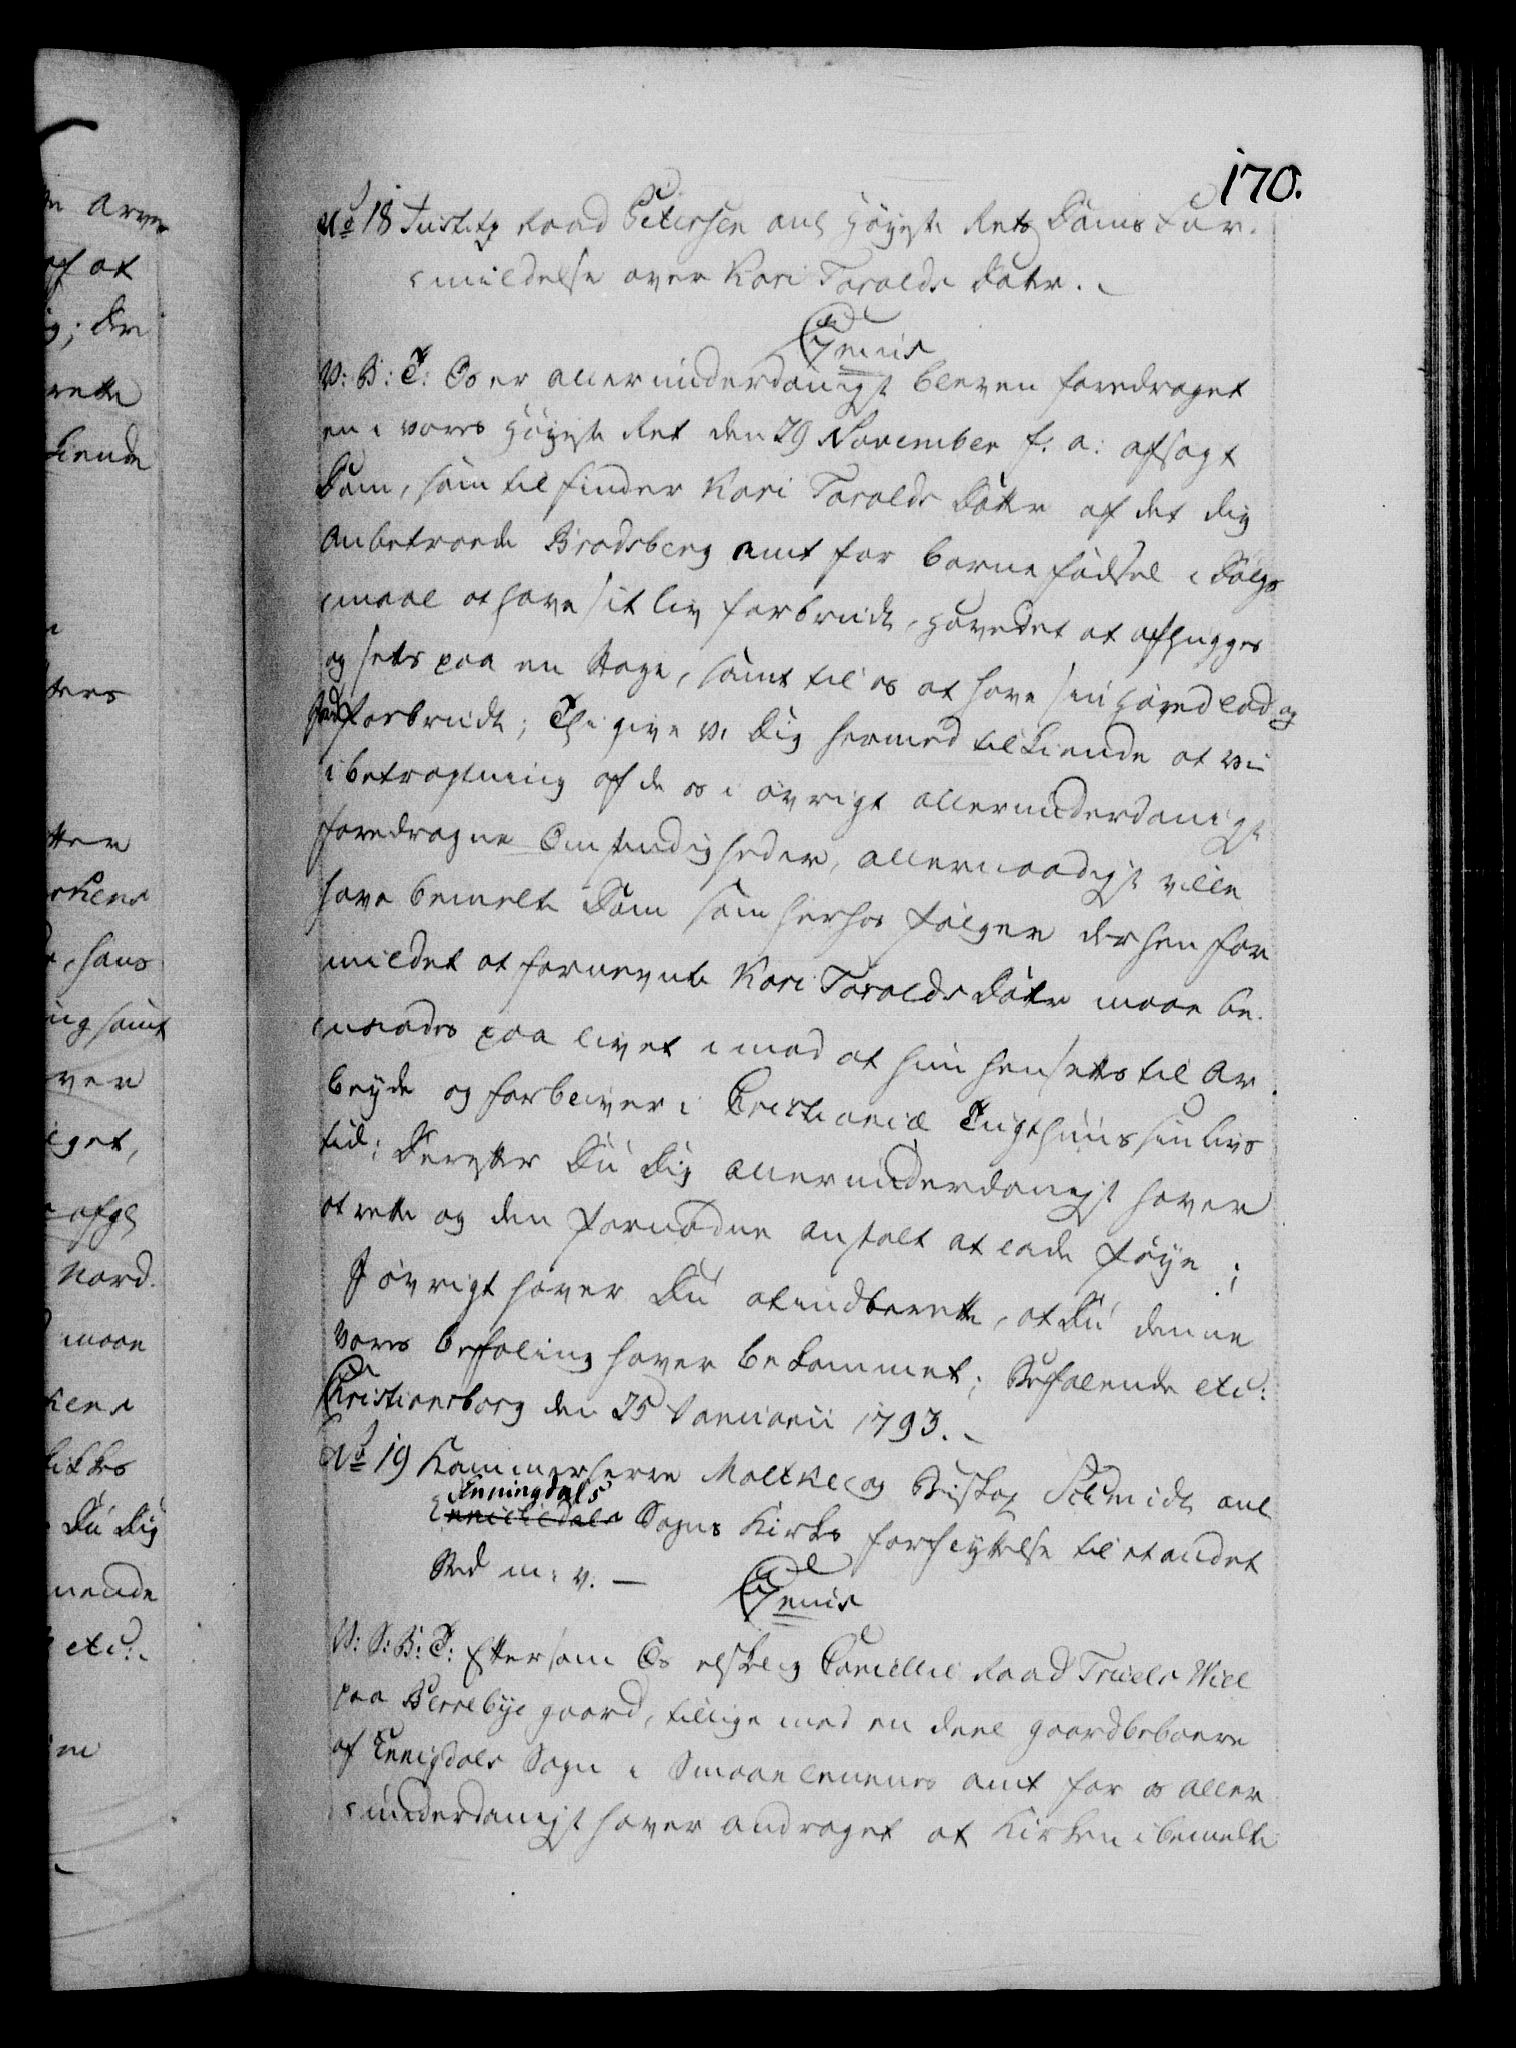 170.
No 18 Justitz Raad Petersen anl Høyeste Rets Doms For-
mildelse over Kari Taralds Datter.
Genus
V: B: T: Os er allerunderdanigst bleven foredraget
en i vores Høyeste Ret den 29 November f. a: afsagt
Dom, som tilfinder Kari Taralds Datter af det dig
anbetroede Bradsberg amt for barnefødsel i Dølgs
maal at have sit liv forbrudt, hovedet at afhugges
og settes paa en Stage, samt til os at have sin Hoved lod og
Jord forbrudt; Thi give vi Dig hermed tilkiende at vi
i betragtning af de os i øvrigt allerunderdanigst
foredragne Omstendigheder, allernaadigst ville
have bemelte Dom som herhos følger derhen for
mildet at fornevnte Kari Taralds Datter maae be-
naades paa livet imod at hun hensettes til Ar
beyde og forbliver i Christiania Tugthuus sin livs
tid; Derefter Du Dig allerunderdanigst haver
at rette og den fornødne anstalt at lade føye;
I øvrigt haver Du at indberette, at Du denne
vores befaling haver bekommet; Befalende etc:
Christiansborg den 25 Januarii 1793.
No 19 Kammerherre Moltke og Biskop Schmidt anl
Enningdals
Sogns Kirkes forflyttelse til et andet
Sted m: v. —
Genus
V: S: B: T: Eftersom Os elskelig Cancellie Raad Truels Wiel
paa Berrebye gaard, tillige med en deel gaardbeboere
af Ennigdals Sogn i Smaalenenes amt for os aller
underdanigst haver andraget at Kirken i bemelte